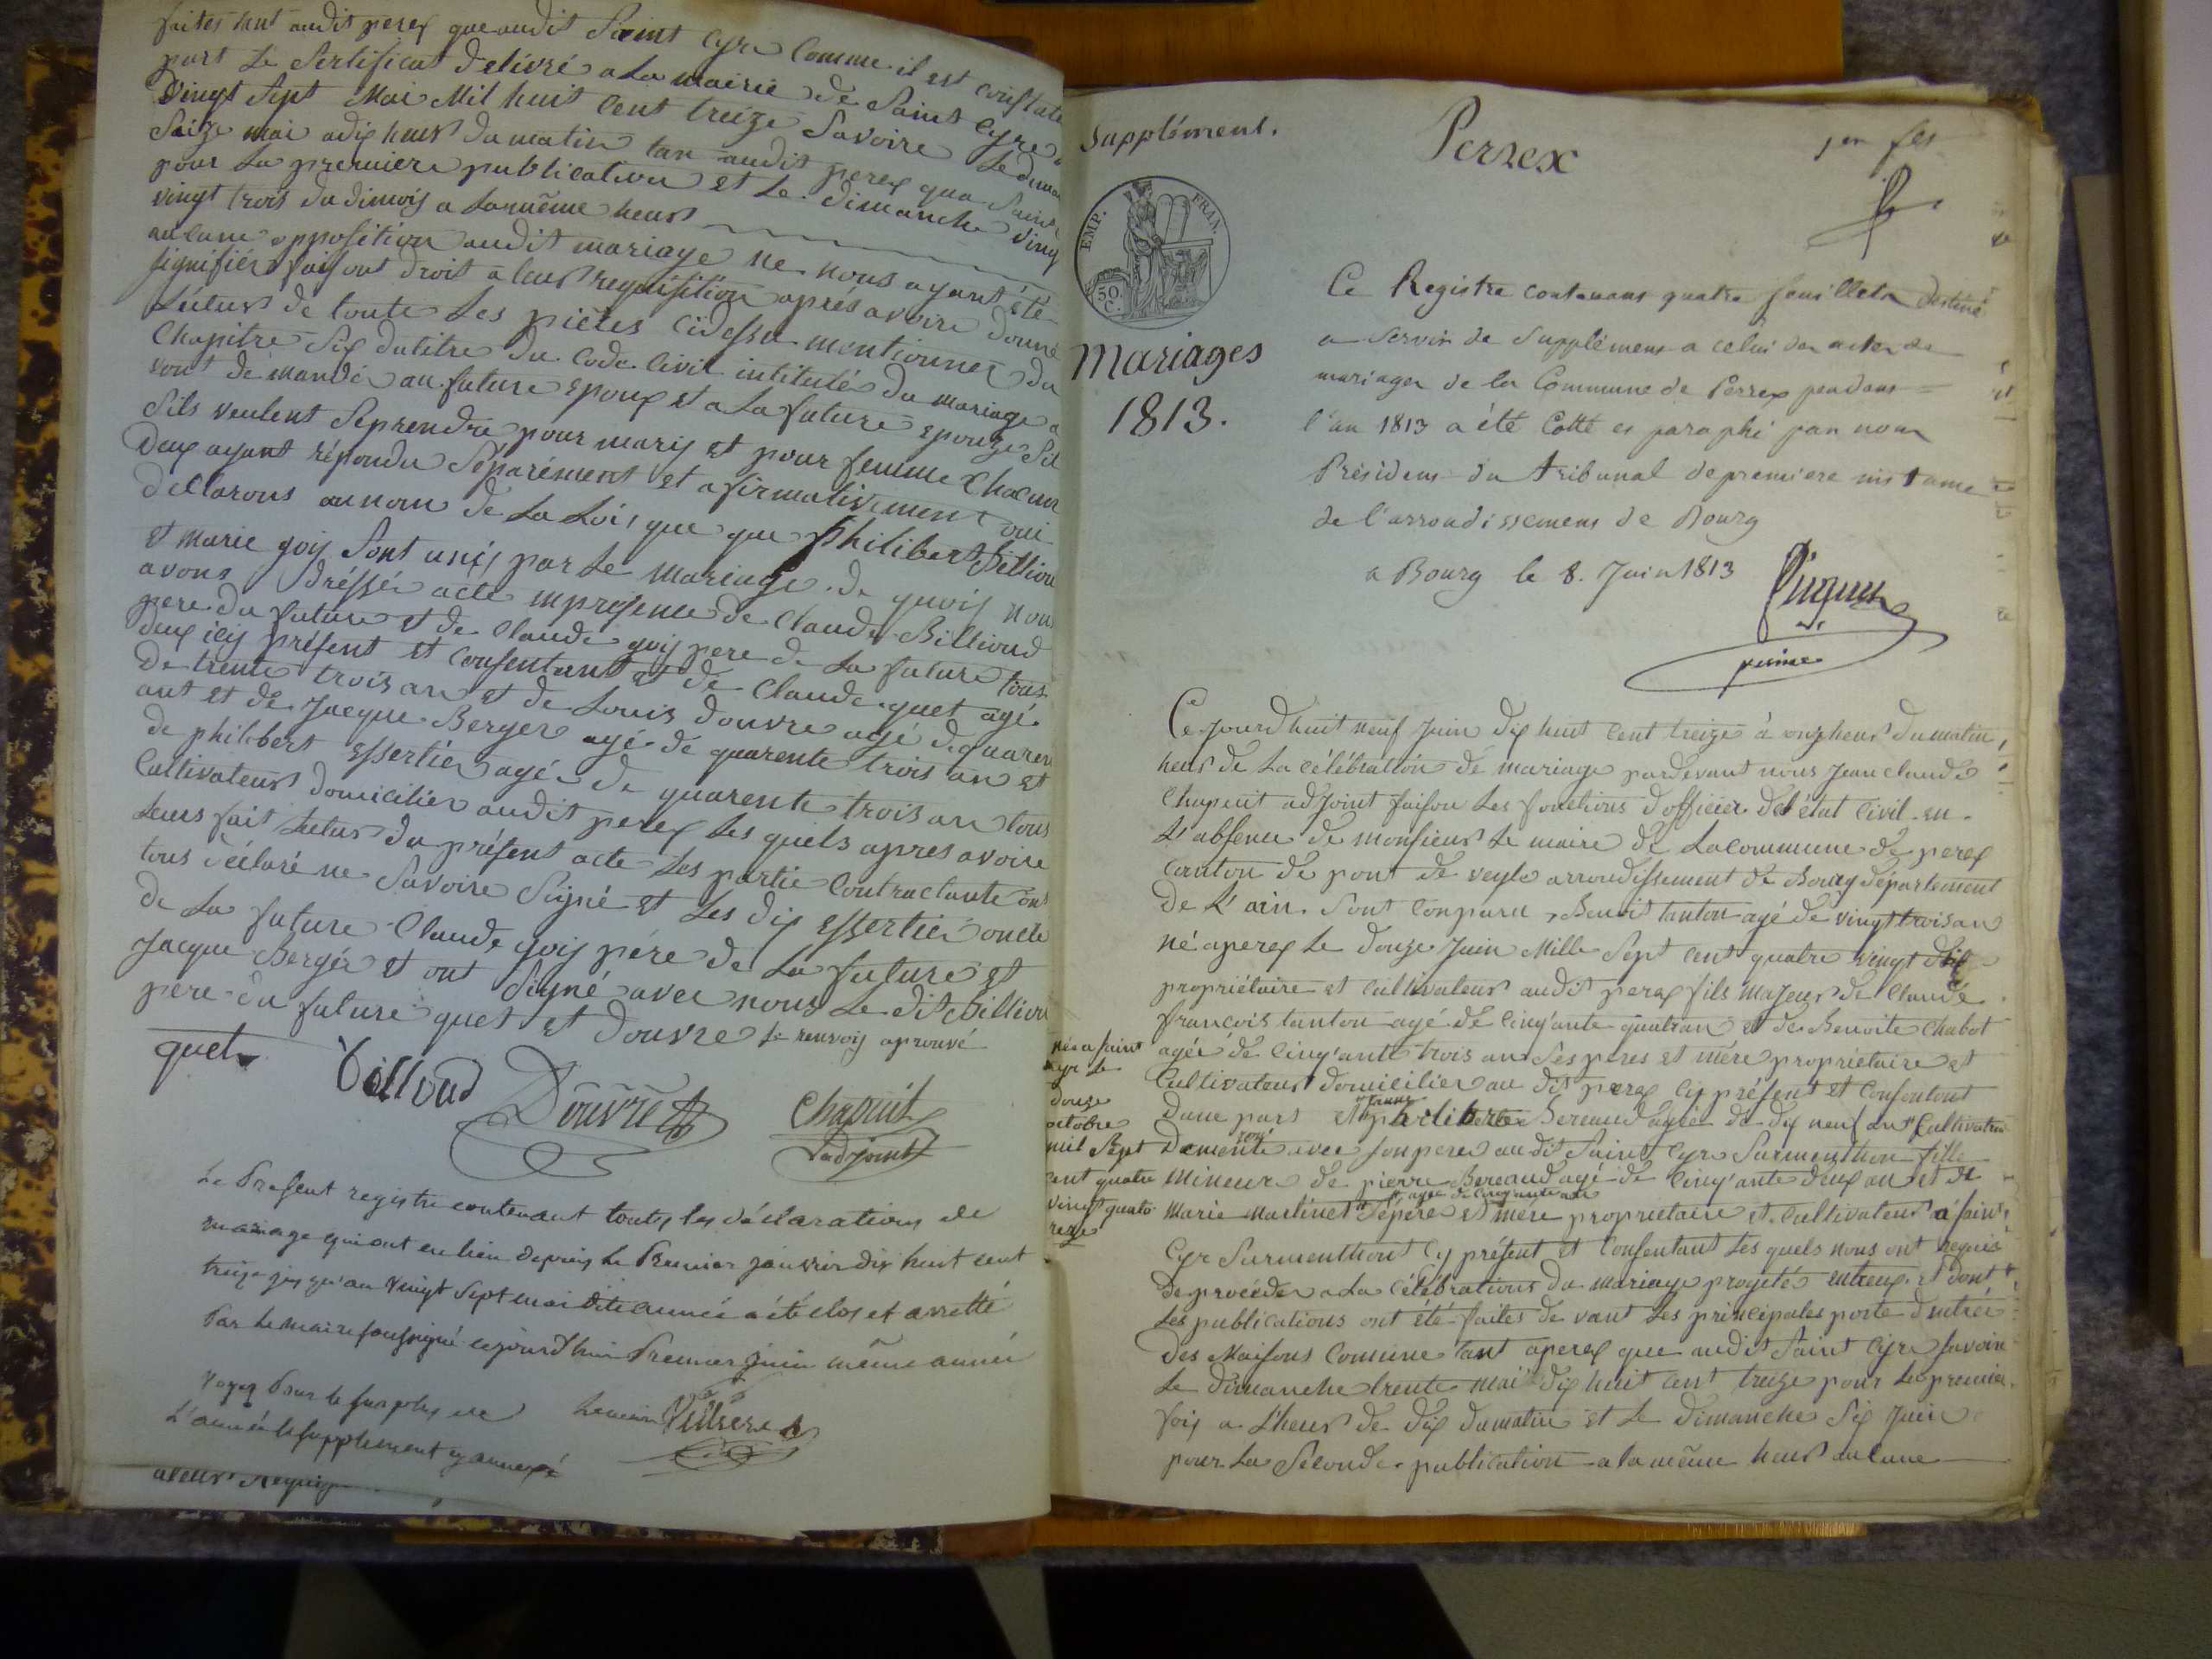 faites tant audit perex que audit Saint Cyre Comme il est constaté
part le Sertificat délivré a La mairie de Saint Cyre
Vingt Sept Mai Mil huit Cent treize Savoire Le diman
Seize mai adix heur du matin tan audit perex qua Saint
pour La premiere publication et Le dimanche ving
vingt trois dudimois a Lamême heur
aucune opposition audit mariage ne nous ayant été
signifiér faisont droit a leur requisition après avoire donné
Lectur de toute Les pièces cidessu mentionner du
Chapitre Six dutitre du Code Civil intitulé du mariage a
vont démandé au future Epoux et a La future epouze Sil
Sils veulent Seprendre pour mary et pour femme Chacun
Deux ayant répondu Séparément et afirmativement oui
déClarons aunom de La Loi, que que philibert Billiou
et marie goij Sont unis par Le Mariage. de quoij nou
avons dréssér acte enprésence de Claude Billioud
pere du future et de Claude goij pere de La future tous
deux icij présent et Consentant et de Claude quet agé
de trente trois an et de Louis douvre agé dequaren
ant et de Jacque Berger agé de quarente trois an et
de philibert Essertiér agé de quarente trois an tous
Cultivateur domicilier audit perex Les quels apres avoire
Leur fait Lectur du présent acte Les partie Contractante ont
tous déclaré ne Savoire Signé et Les dix Essertiér oncle
de La future Claude goij pére de La future et
Jacque Bergér et ont Signé avec nous Le dit Billiou
père du future quet et douvre le renvoij aprouvé
quet Billoud Douvre Chapuit
adjoint
Le Présent registre contenant toutes les déclarations de
mariage qui ont eu lieu depuis le Premier janvier dix huit cent
treize jusqu'au vingt Sept mai dite année a été clos et arretté
Par le maire soussigné cejourd'hui Premier juin même année
voyez Pour le surplus de Le maire
L'année le supplement y annexé
Supplément. Perrex 1er fet
EMP. FRAN.
50 C.
Mariages
1813.
Ce Registre contenant quatre feuillets destiné
a servir de Supplément a celui des actes de
mariages de la Commune de Perrex pendant
l'an 1813 a été Cotté et paraphé par nous
Président du tribunal de premiere instance
de l'arrondissement de Bourg
a Bourg le 8. Juin 1813
Ce Jourd'huit neuf Juin dix huit Cent treize à onzheur dumatin,
heur de La célébration de mariage pardevant nous Jean claude
Chapuit adJoint faisou Les fonctions d'officier de l'état Civil en
L'absence de monsieur Le maire de Lacommune de perex
Canton de pont de veyle arrondissement de Bourg département
de L'ain. Sont Comparu, Benoit tanton agé de vingt trois an
né aperex Le douze Juin Mille Sept Cent quatre vingt dix
propriétaire et Cultivateur audit perex fils Majeur de Claude
francois tanton agé de Cinq'ante quatran et de Benoite Chabot
agée de Cinq'ante trois an Ses peres et mére propriétaire et
Cultivateur domicilier au dit perex Cij présent et Consentant
Dune part philiberte Bereaud agée de dix neuf an Cultivatr
Demeurée avec Son pere au dit Saint Cyre Surmenthon fille
Mineure de pierre Bereaud agé de Cinq'ante deux an et de
agée de Cinq'ante an
Marie Martinet Sépére et mére propriétaire et Cultivateur a Saint
Cyre Surmenthont Cy présent et Consentant Les quels nous ont requis
De procéder a La Célébrations du mariage projeté entreux et dont
Les publications ont été faites de vant Les principales porte d'entrée
Des Maisons Commune tant aperex que audit Saint Cyre Savoire
Le Dimanche trente mai dix huit cent treize pour La première
fois a Lheur de dix dumatin et Le Dimanche Six Juin
pour La Seconde publication a la même heur aucune
née a Saint
Cyre Le
douze
octobre
mil Sept
cent quatre
vingt quato
reze